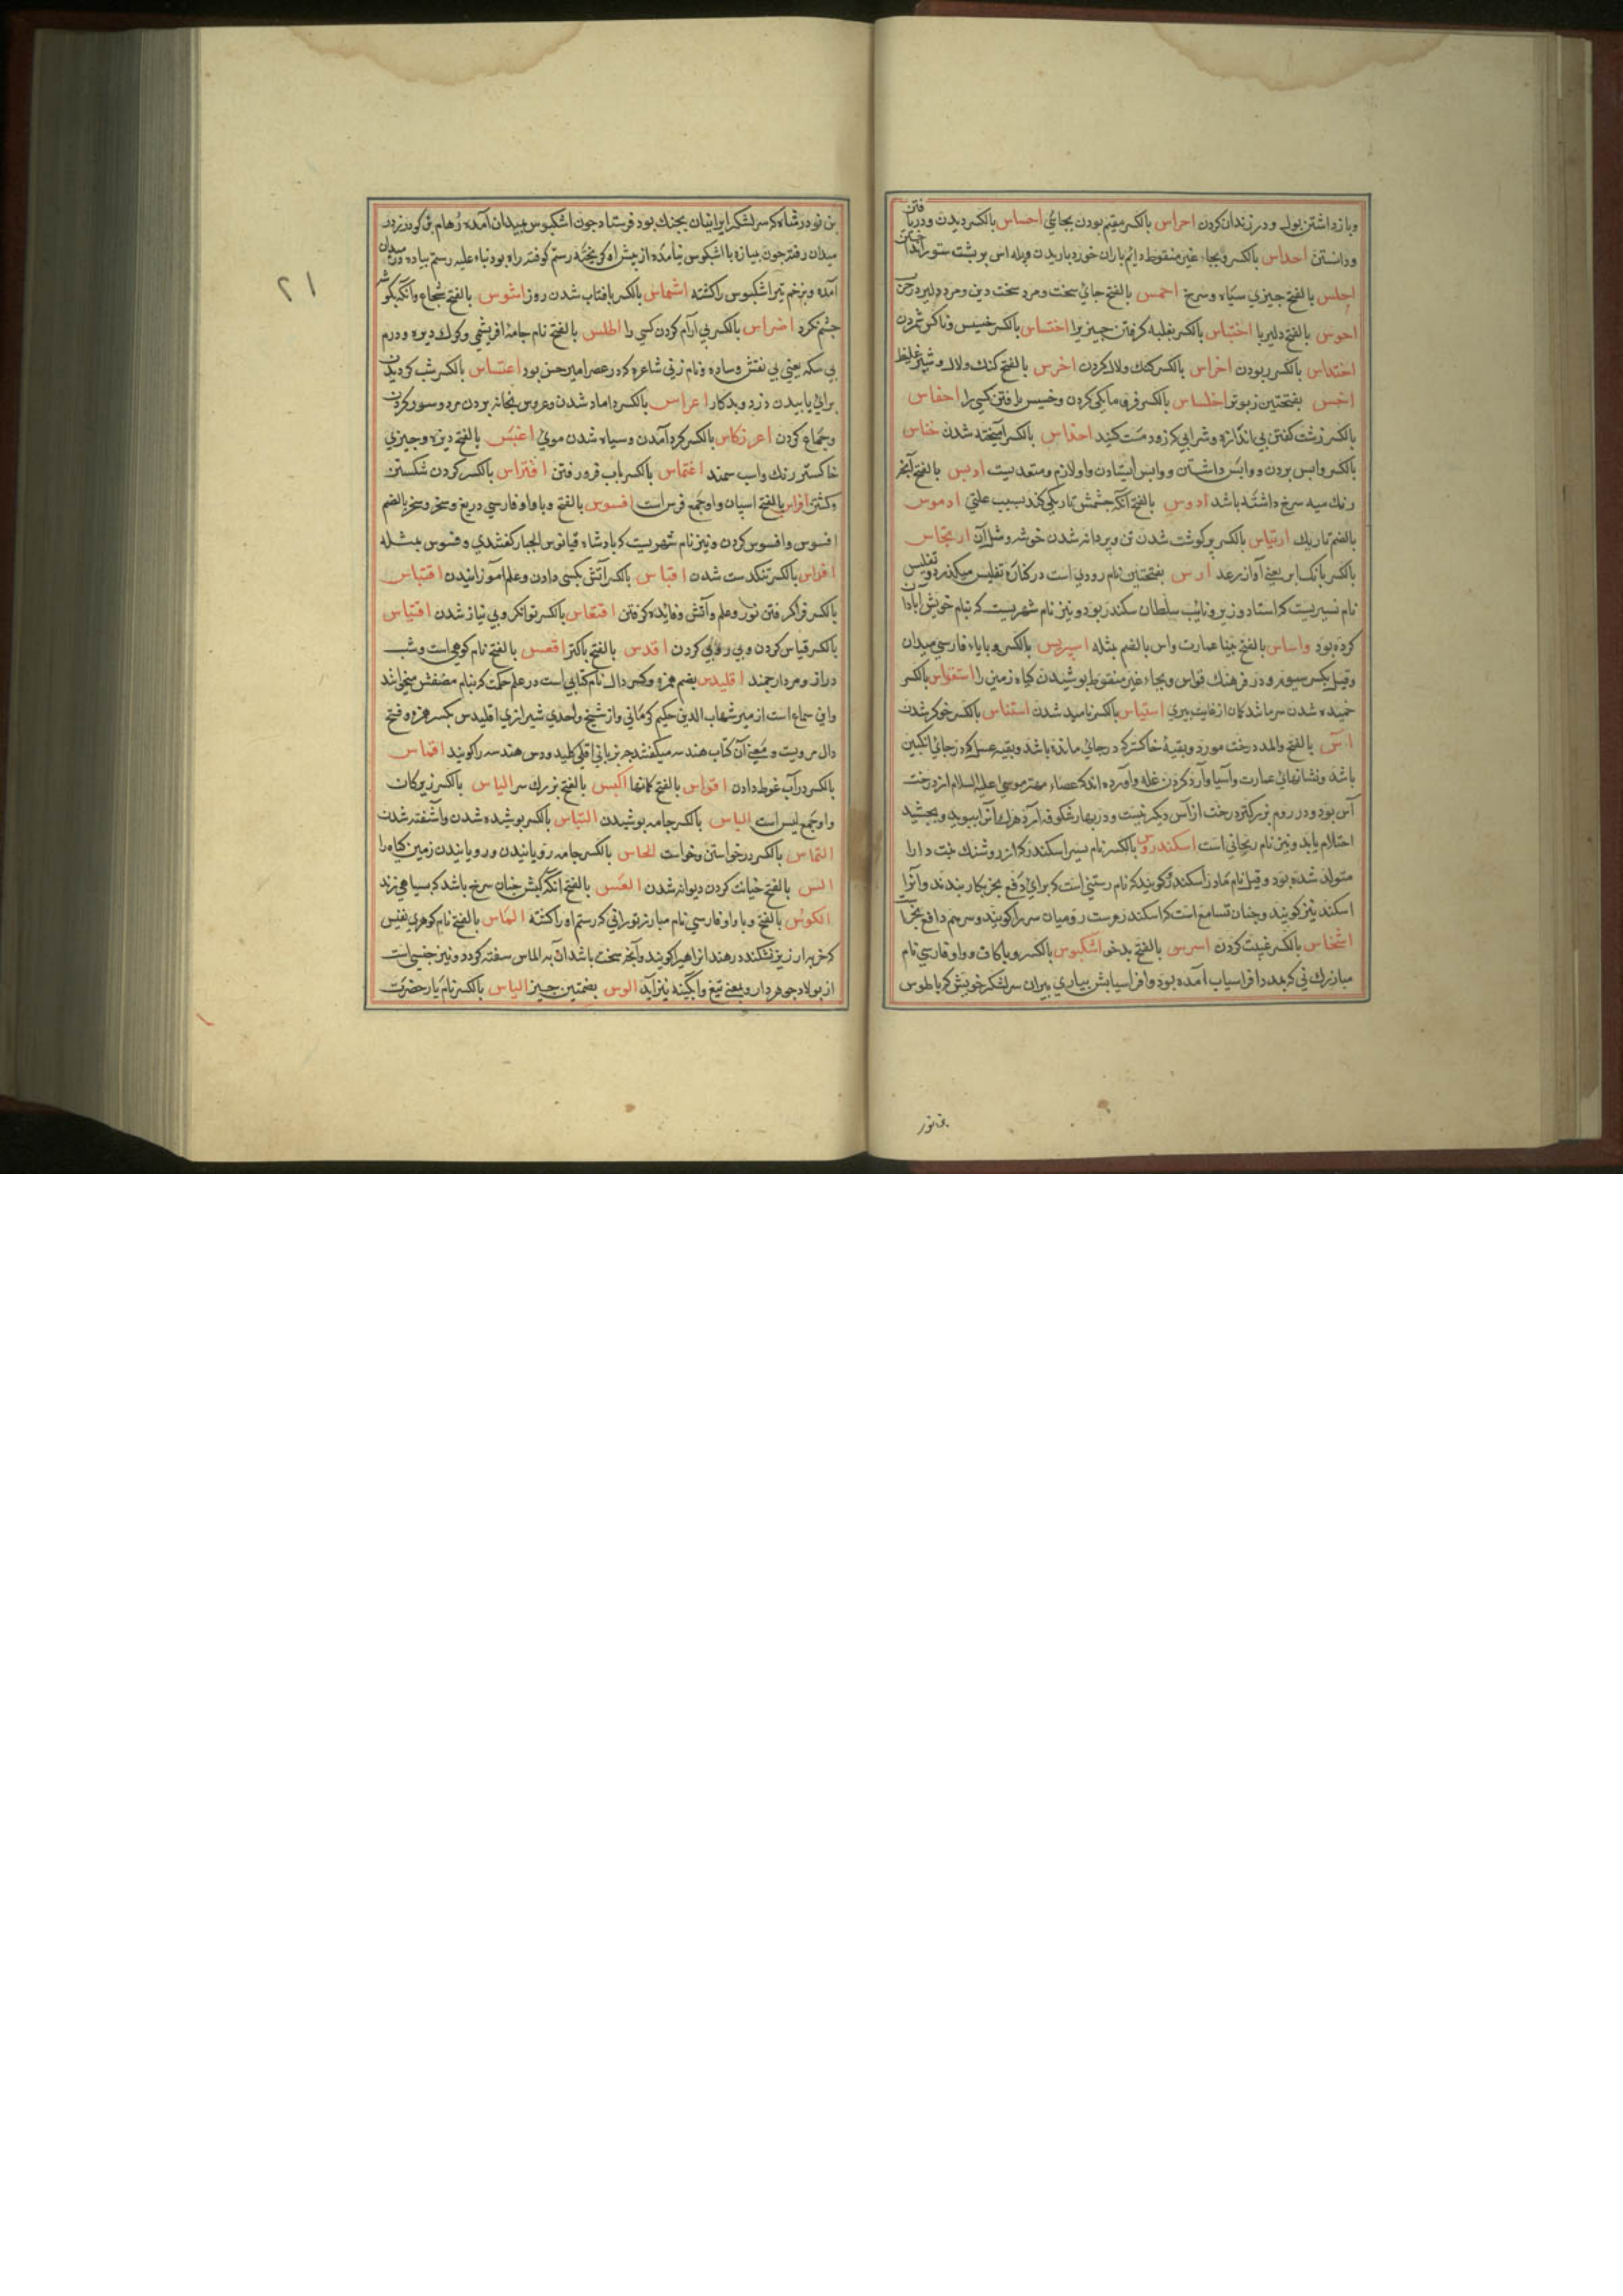 وبازداشتن بول ودر زندان کردن احراس بالکسر مقیم بودن بجائی احساس بالکسر دیدن ودریافتن
ودانستن احداس بالکسر وبجاء غین منقوط دایم باران خورد باریدن وپلاس بر پشت ستور انداختن
احلس بالفتح چیزی سیاه وسرخ احمس بالفتح جائی سخت ومرد سخت دین ومرد دلیر در حرب
احوس بالفتح دلیر با اختباس بالکسر بغلبه گرفتن چیزیرا اختساس بالکسر خسیس وناکس شمردن
اختلاس بالکسر ربودن اخراس بالکسر کنک ولال کردن اخرس بالفتح کنک ولال وشیر غلیظ
اخس بفتحتین زبونتر اخلساس بالکسر فرومایکی کردن وخسیس یافتن کسی را احفاس
بالکسر زشت کفتن بی اندازه وشرابی که زود مست کند اخلاس بالکسر آمیخته شدن خناس
بالکسر واپس بردن وواپس داشتن وواپس ایستادن واو لازم ومتعدیست ادبس بالفتح آنچه
رنک سیه سرخ داشته باشد ادوس بالفتح آنکه چشمش تاریکی کند بسبب علتی ادموس
بالضم تاریک ارتیاس بالکسر پر کوشت شدن تن وپر دانه شدن خوشه ومثل آن ارتجاس
بالکسر بانک ابر یعنی آواز رعد ارس بفتحتین نام رودی است در کناره تفلیس میکذرد وتفلیس
نام شهریست که استاد وزیر ونائب سلطان سکندر بود ونیز نام شهریست که بنام خویش آبادان
کرده بود واساس بالفتح بنا عمارت واس بالضم مثله اسپریس بالکسر وبا باء فارسی میدان
وقیل بکسر سیوم ودر فرهنک قواس وبجاء غین منقوط پوشیدن کیاه زمین را استقواس بالکسر
خمیده شدن سر مانند کمان از غایت پیری استیاس بالکسر نامید شدن استناس بالکسر خوکر شدن
آس بالفتح والمد درخت مورد وبقیهٔ خاکستر که در جائی مانده باشد وبقیه عسل که در جائی انکبین
باشد ونشانهای عمارت وآسیا وآرد کردن غله وآورده اند که عصاء مهتر موسی علیه السلام از درخت
آس بود ودر روم بزرکتر درخت از آس دیکر نیست ودر بهار شکوفه آرد هرکه آنرا ببوید وبچشید
احتلام یابد ونیز نام ریحانی است اسکندروس بالکسر نام پسر اسکندر که از روشنک بنت دارا
متولد شده بود وقیل نام مادر اسکندر کویند که نام رستنی است که برای دفع بخر بکار بندند وآنرا
اسکند نیز کویند وچنان تسامع است که اسکندروس رومیان سیر را کویند وسیر هم دافع بخر است
اشخاس بالکسر غیبت کردن اسرس بالفتح بدخو اشکبوس بالکسر وبا کاف وواو فارسی نام
مبارزک نی که بمدد افراسیاب آمده بود وافراسیابش بیاری پیران سر لشکر خویش که با طوس
بن نور
بن نوذر شاه که سر لشکر ایرانیان بجنک بود فرستاد چون اشکبوس بمیدان آمده رهام بن کودرز در
میدان رفته چون مبارزه با اشکبوس نیامده از پیش او کریخته رستم کوفته راه بود بناء علیه رستم پیاده در میدان
آمده وبزخم تیر اشکبوس را کشته اشماس بالکسر بافتاب شدن روز اشوس بالفتح شجاع وآنکه بکوشه
چشم نکرد اضراس بالکسر بی آرام کردن کسی را اطلس بالفتح نام جامهٔ ابریشمی وکرک دیزه ودرم
بی سکه یعنی بی نقش وساده ونام زنی شاعره که در عصر امیر حسن بود اعتساس بالکسر شب کردیدن
برائی یابیدن دزد وبدکار اعراس بالکسر داماد شدن وعروس بخانه بردن مرد وسور کردن
وجماع کردن اعرنکاس بالکسر کرد آمدن وسیاه شدن موی اغبس بالفتح دیزه وچیزی
خاکستر رنک واسب سمند اغتماس بالکسر باب فرو رفتن افتراس بالکسر کردن شکستن
وکشتن افراس بالفتح اسپان واو جمع فرس است افسوس بالفتح وبا واو فارسی دریغ وسخر وسخر بالضم
افسوس وافسوس کردن ونیز نام شهریست که بادشاه دقیانوس الجبار کفتندی وفسوس مثله
افلاس بالکسر تنکدست شدن اقباس بالکسر آتش بکسی دادن وعلم آموزانیدن اقتباس
بالکسر فراکرفتن نور وعلم وآتش وفایده کرفتن اقتعاس بالکسر توانکر وبی نیاز شدن اقتیاس
بالکسر قیاس کردن وپی روی کردن اقدس بالفتح پاکتر اقعس بالفتح نام کوهی است وشب
دراز ومرد ارجمند اقلیدس بضم همزه وکسر دال نام کتابی است در علم حکمت که بنام مصنفش میخوانند
واین سماع است از میر شهاب الدین حکیم کرمانی واز شیخ واحدی شیرازی اقلیدس بکسر همزه وفتح
دال مرویست ومعنی آن کتاب هندسه میکفتند چه بزبانی اقلی کلید ودس هندسه را کویند اقماس
بالکسر در آب غوطه دادن اقواس بالفتح کمانها اکبس بالفتح بزرک سر الیاس بالکسر زیرکان
واو جمع لیس است الباس بالکسر جامه پوشیدن التباس بالکسر پوشیده شدن وآشفته شدن
التماس بالکسر درخواستن وخواست الحاس بالکسر جامه رویانیدن ورویانیدن زمین کیاه را
الس بالفتح خیانت کردن دیوانه شدن العس بالفتح آنکه لبش چنان سرخ باشد که بسیاهی زند
الکوس بالفتح وبا واو فارسی نام مبارز تورانی که رستم او را کشته الماس بالفتح نام کوهری نفیس
که جز بارزیز نشکند در هند آنرا هیرا کویند وآنچه سخت باشد آن به الماس سفته کردد ونیز جنسی است
از پولاد جوهردار وبمعنی تیغ وآبکینه نیز آید الوس بضمتین چیز الیاس بالکسر نام یار حضرت
۲۱